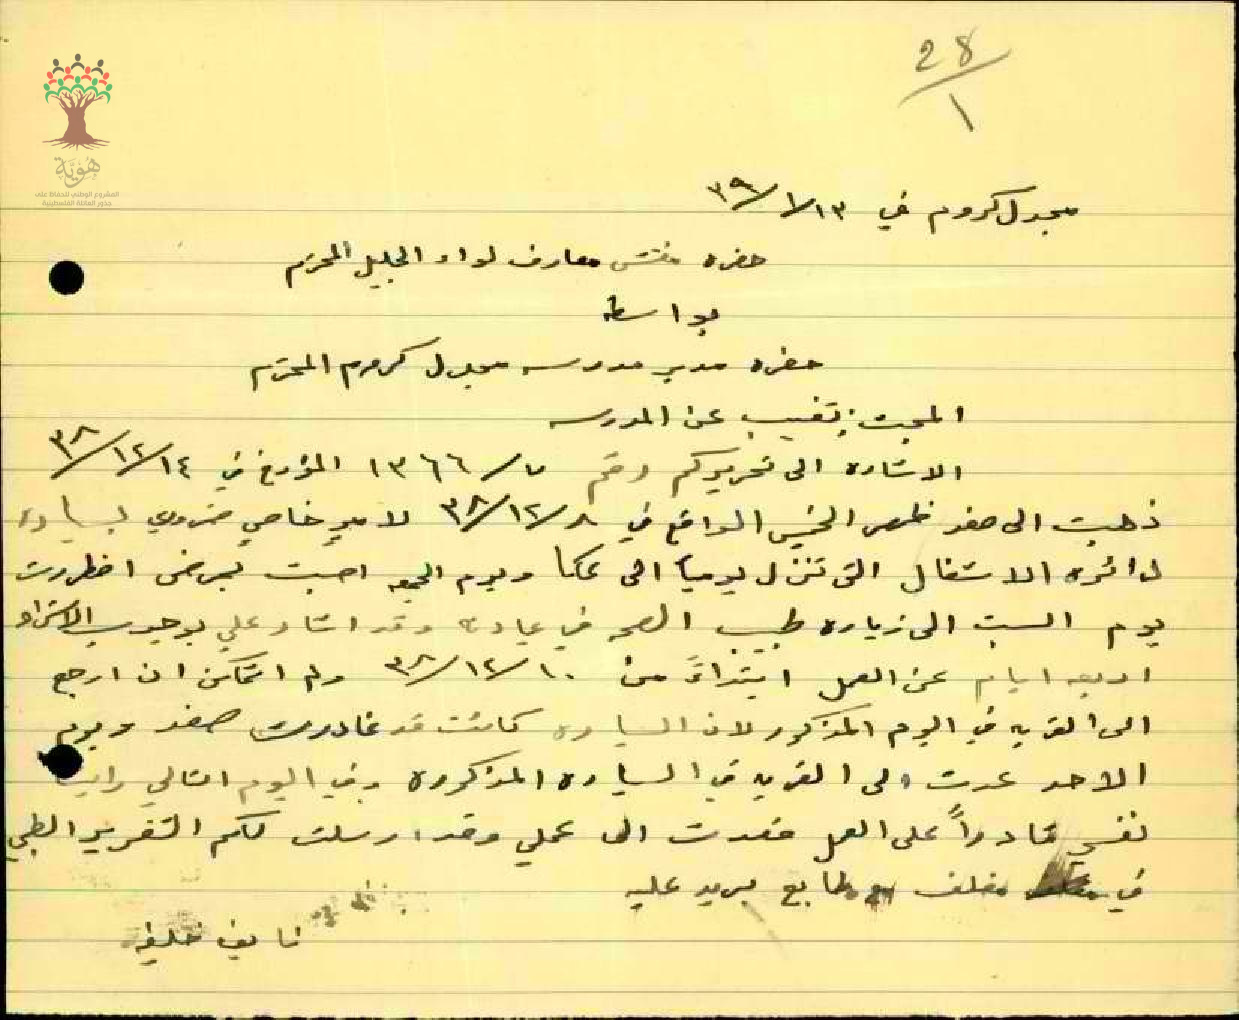 28/1
هُوِيَّة
المشروع الوطني للحفاظ على
جذور العائلة الفلسطينية
مجدل كروم في ١٣/١/٣٩
حضرة مفتش معارف لواء الجليل المحترم
بواسطة
حضرة مدير مدرسة مجدل كروم المحترم
المبحث: تغيب عن المدرسة
الاشارة الى تحريركم رقم ٧/١٣٦٦ المؤرخ في ١٤/١٢/٣٨
ذهبت الى صفد ظهر الخميس الواقع في ٨/١٢/٣٨ لامر خاص ضروري بسيارة
دائرة الاشغال التي تنزل يومياً الى عكا ويوم الجمعه اصبت بمرض اضطررت
يوم السبت الى زيارة طبيب الصحه في عيادته وقد اشار علي بوجوب
اربعه ايام عن العمل ابتداءً من ١٠/١٢/٣٨ ولم اتمكن ان ارجع
الى القريه في اليوم المذكور لان السياره كانت قد غادرت صفد ويوم
الاحد عدت الى القريه في السياره المذكورة وفي اليوم التالي رايت
نفسي قادراً على العمل فعدت الى عملي وقد ارسلت لكم التقرير الطبي
في مغلف طابع بريد عليه
نايف خليفه